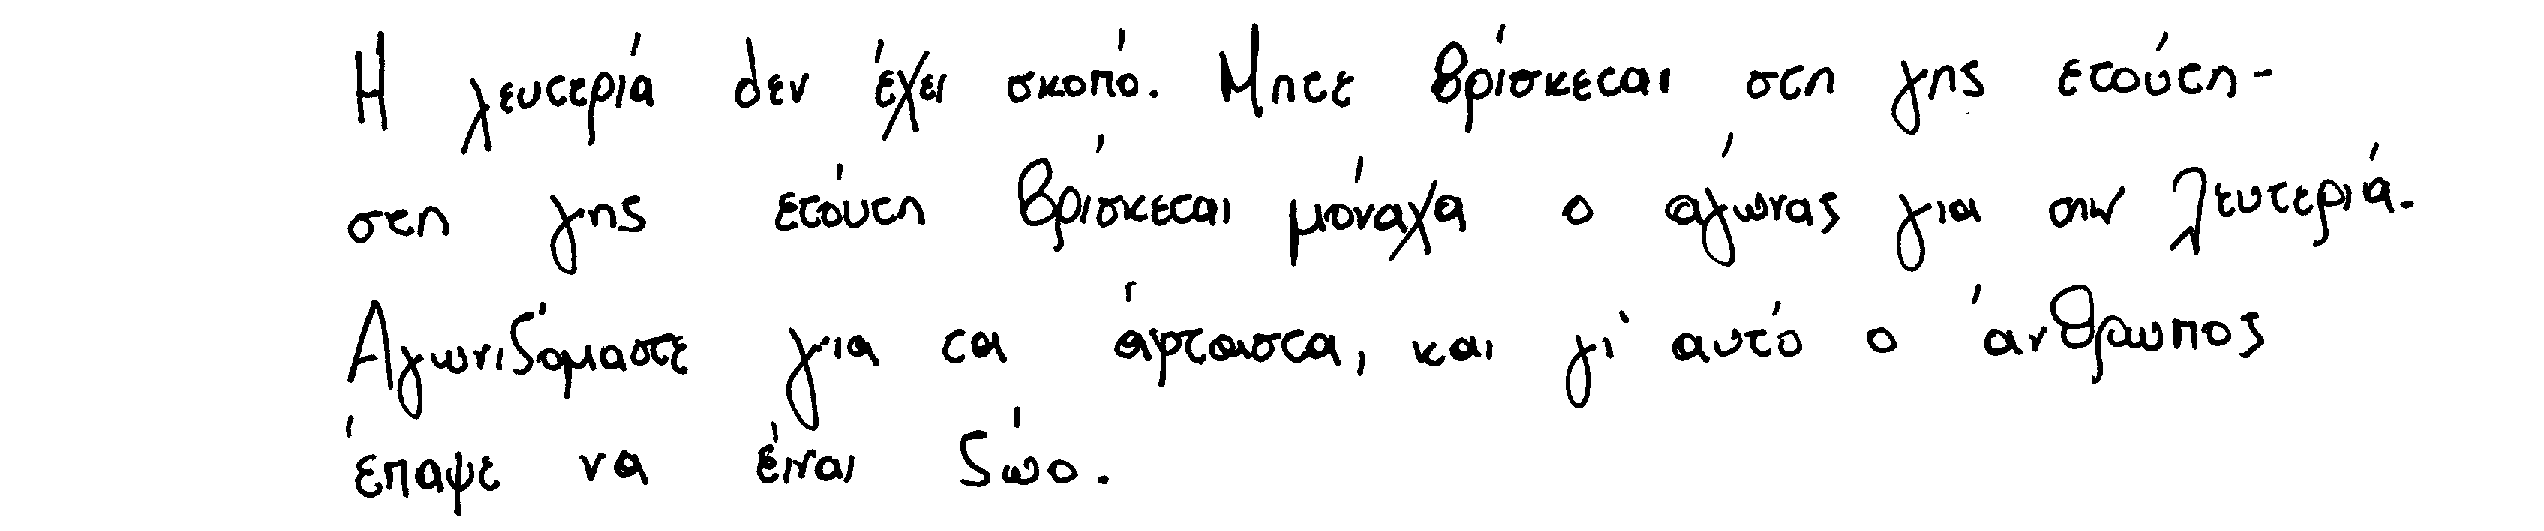 Η λευτεριά δεν έχει σκοπό. Μητε βρίσκεται στη γης ετούτη-
στη γης ετούτη βρίσκεται μόναχα ο αγώνας για την λευτεριά.
Αγωνιζόμαστε για τα άφταστα, και γι' αυτό ο άνθρωπος
έπαψε να έιναι ζώο.